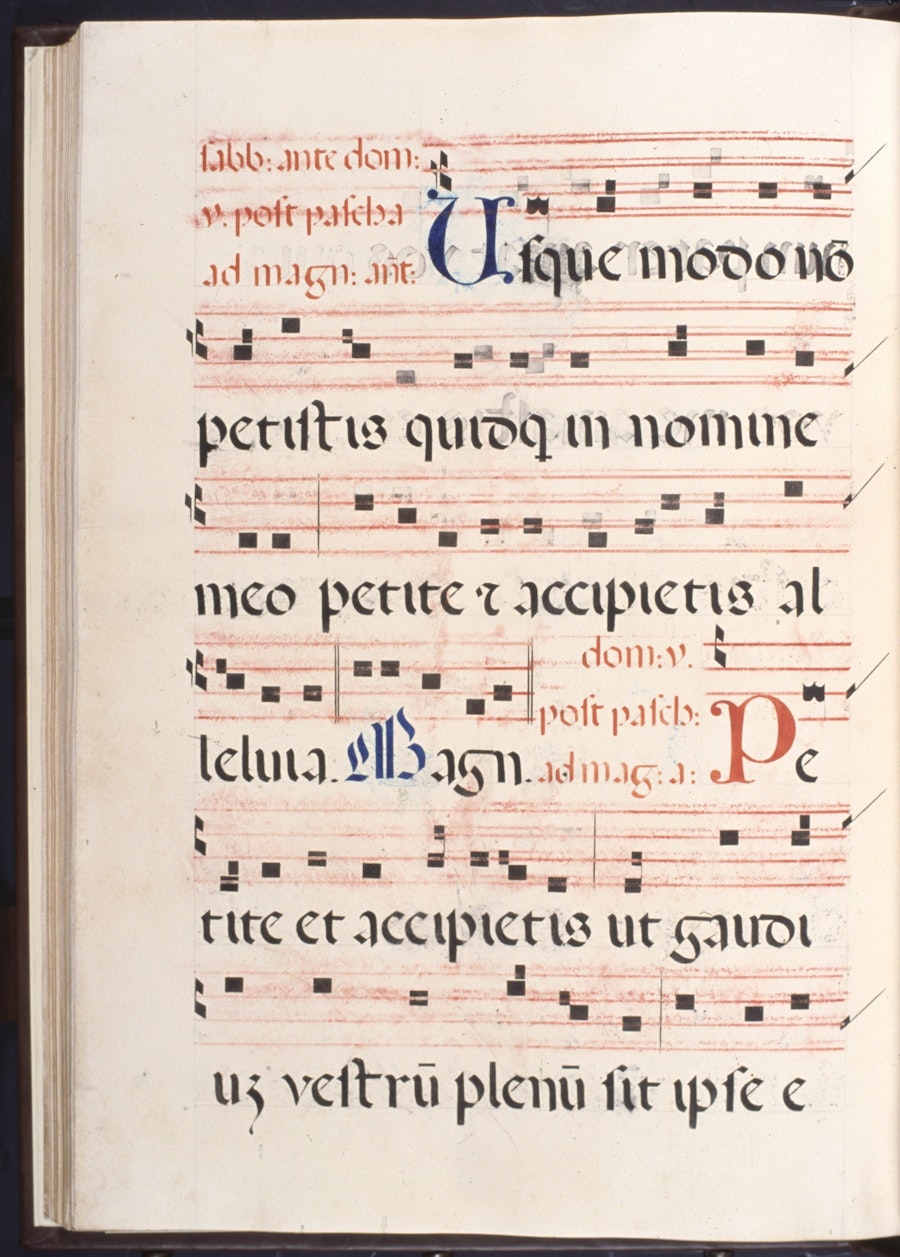 sabb: ante dom:
v. post pascha
ad magn: ant:
Usque modo nō
petistis quidq in nomine
meo petite ⁊ accipietis al
leluia. Magn.
dom: v.
post pasch:
ad mag: a:
Pe
tite et accipietis ut gaudi
uꝫ vestrū plenū sit ipse e